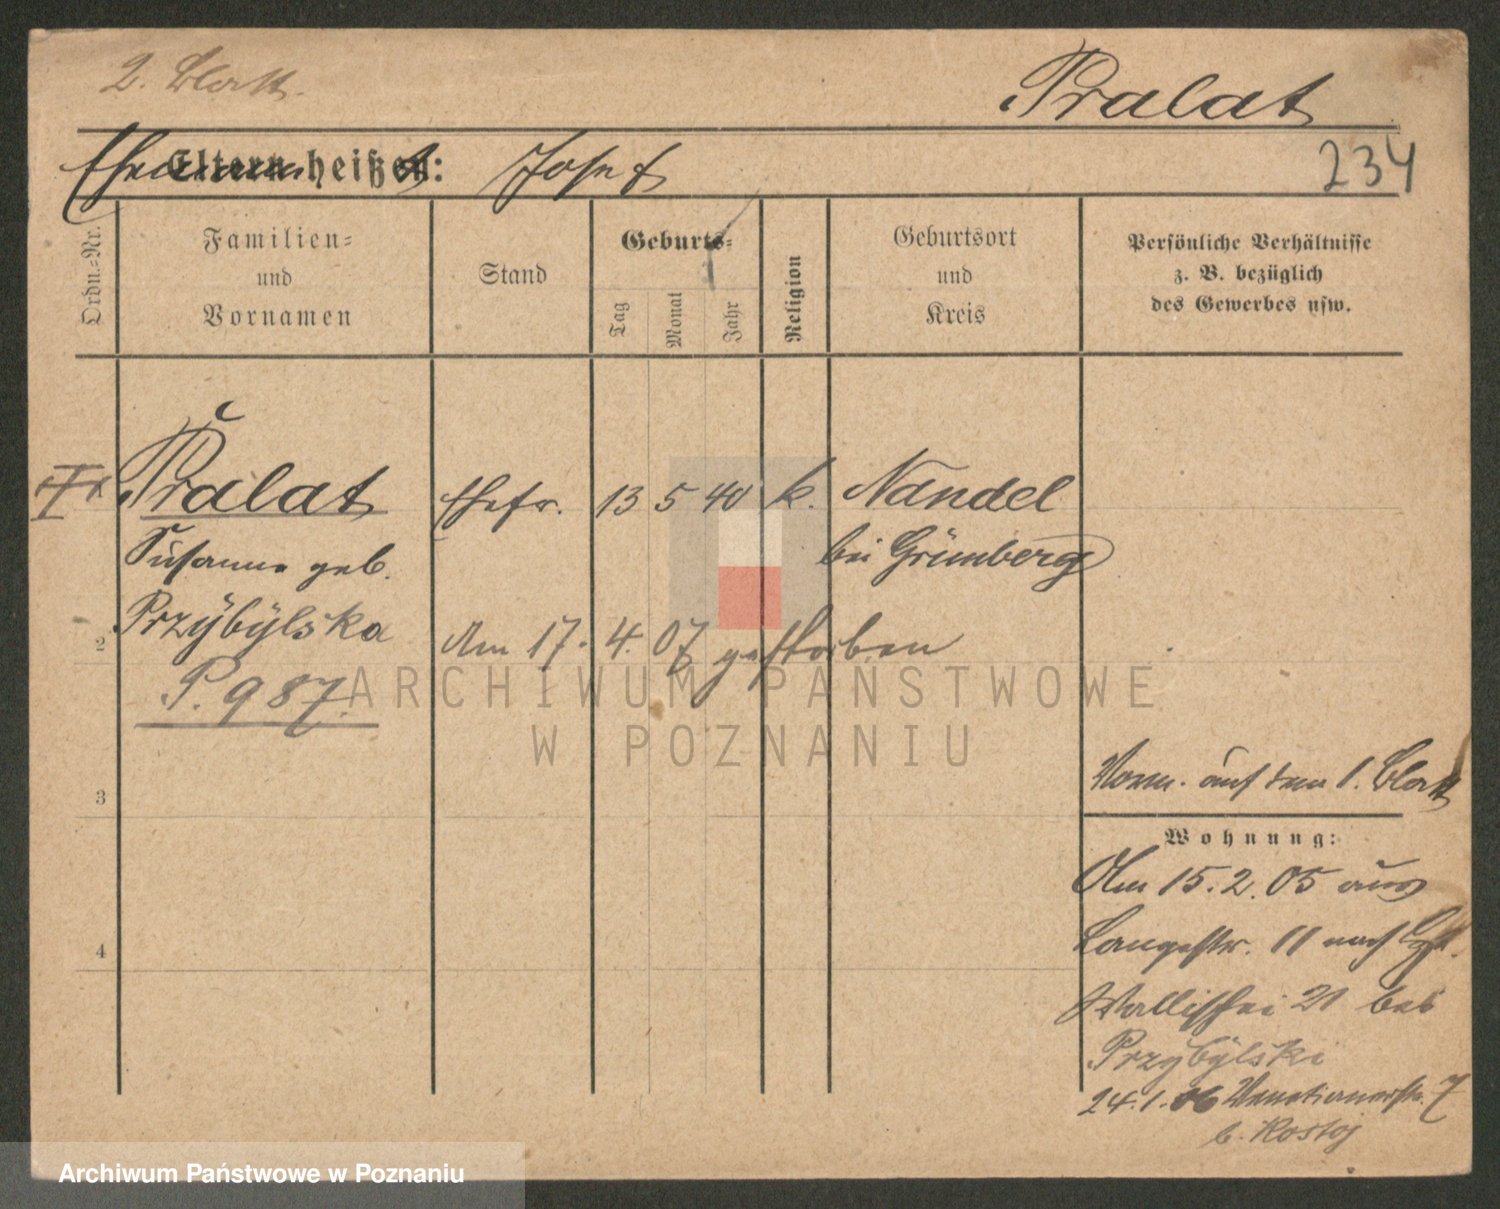 2. Blatt.
Pralat
Ehemann heißt: Josef
234
Ordn.-Nr.
Familien-
und
Vornamen
Stand
Geburts-
Tag
Monat
Jahr
Religion
Geburtsort
und
Kreis
Persönliche Verhältnisse
z. B. bezüglich
des Gewerbes usw.
Pralat Ehefr. 13 5 40 k. Nandel
Susanne geb. bei Grünberg
Przybylska
2 Am 17. 4. 07 gestorben
P. 987.
3
Vorm. auf dem 1. Blatt
Wohnung:
Am 15.2.05 aus
Langestr. 11 nach
4
Wallischei 21 bei
Przybylski
24.1.06 Venetianerstr. 7
b.
ARCHIWUM PAŃSTWOWE
W POZNANIU
Archiwum Państwowe w Poznaniu